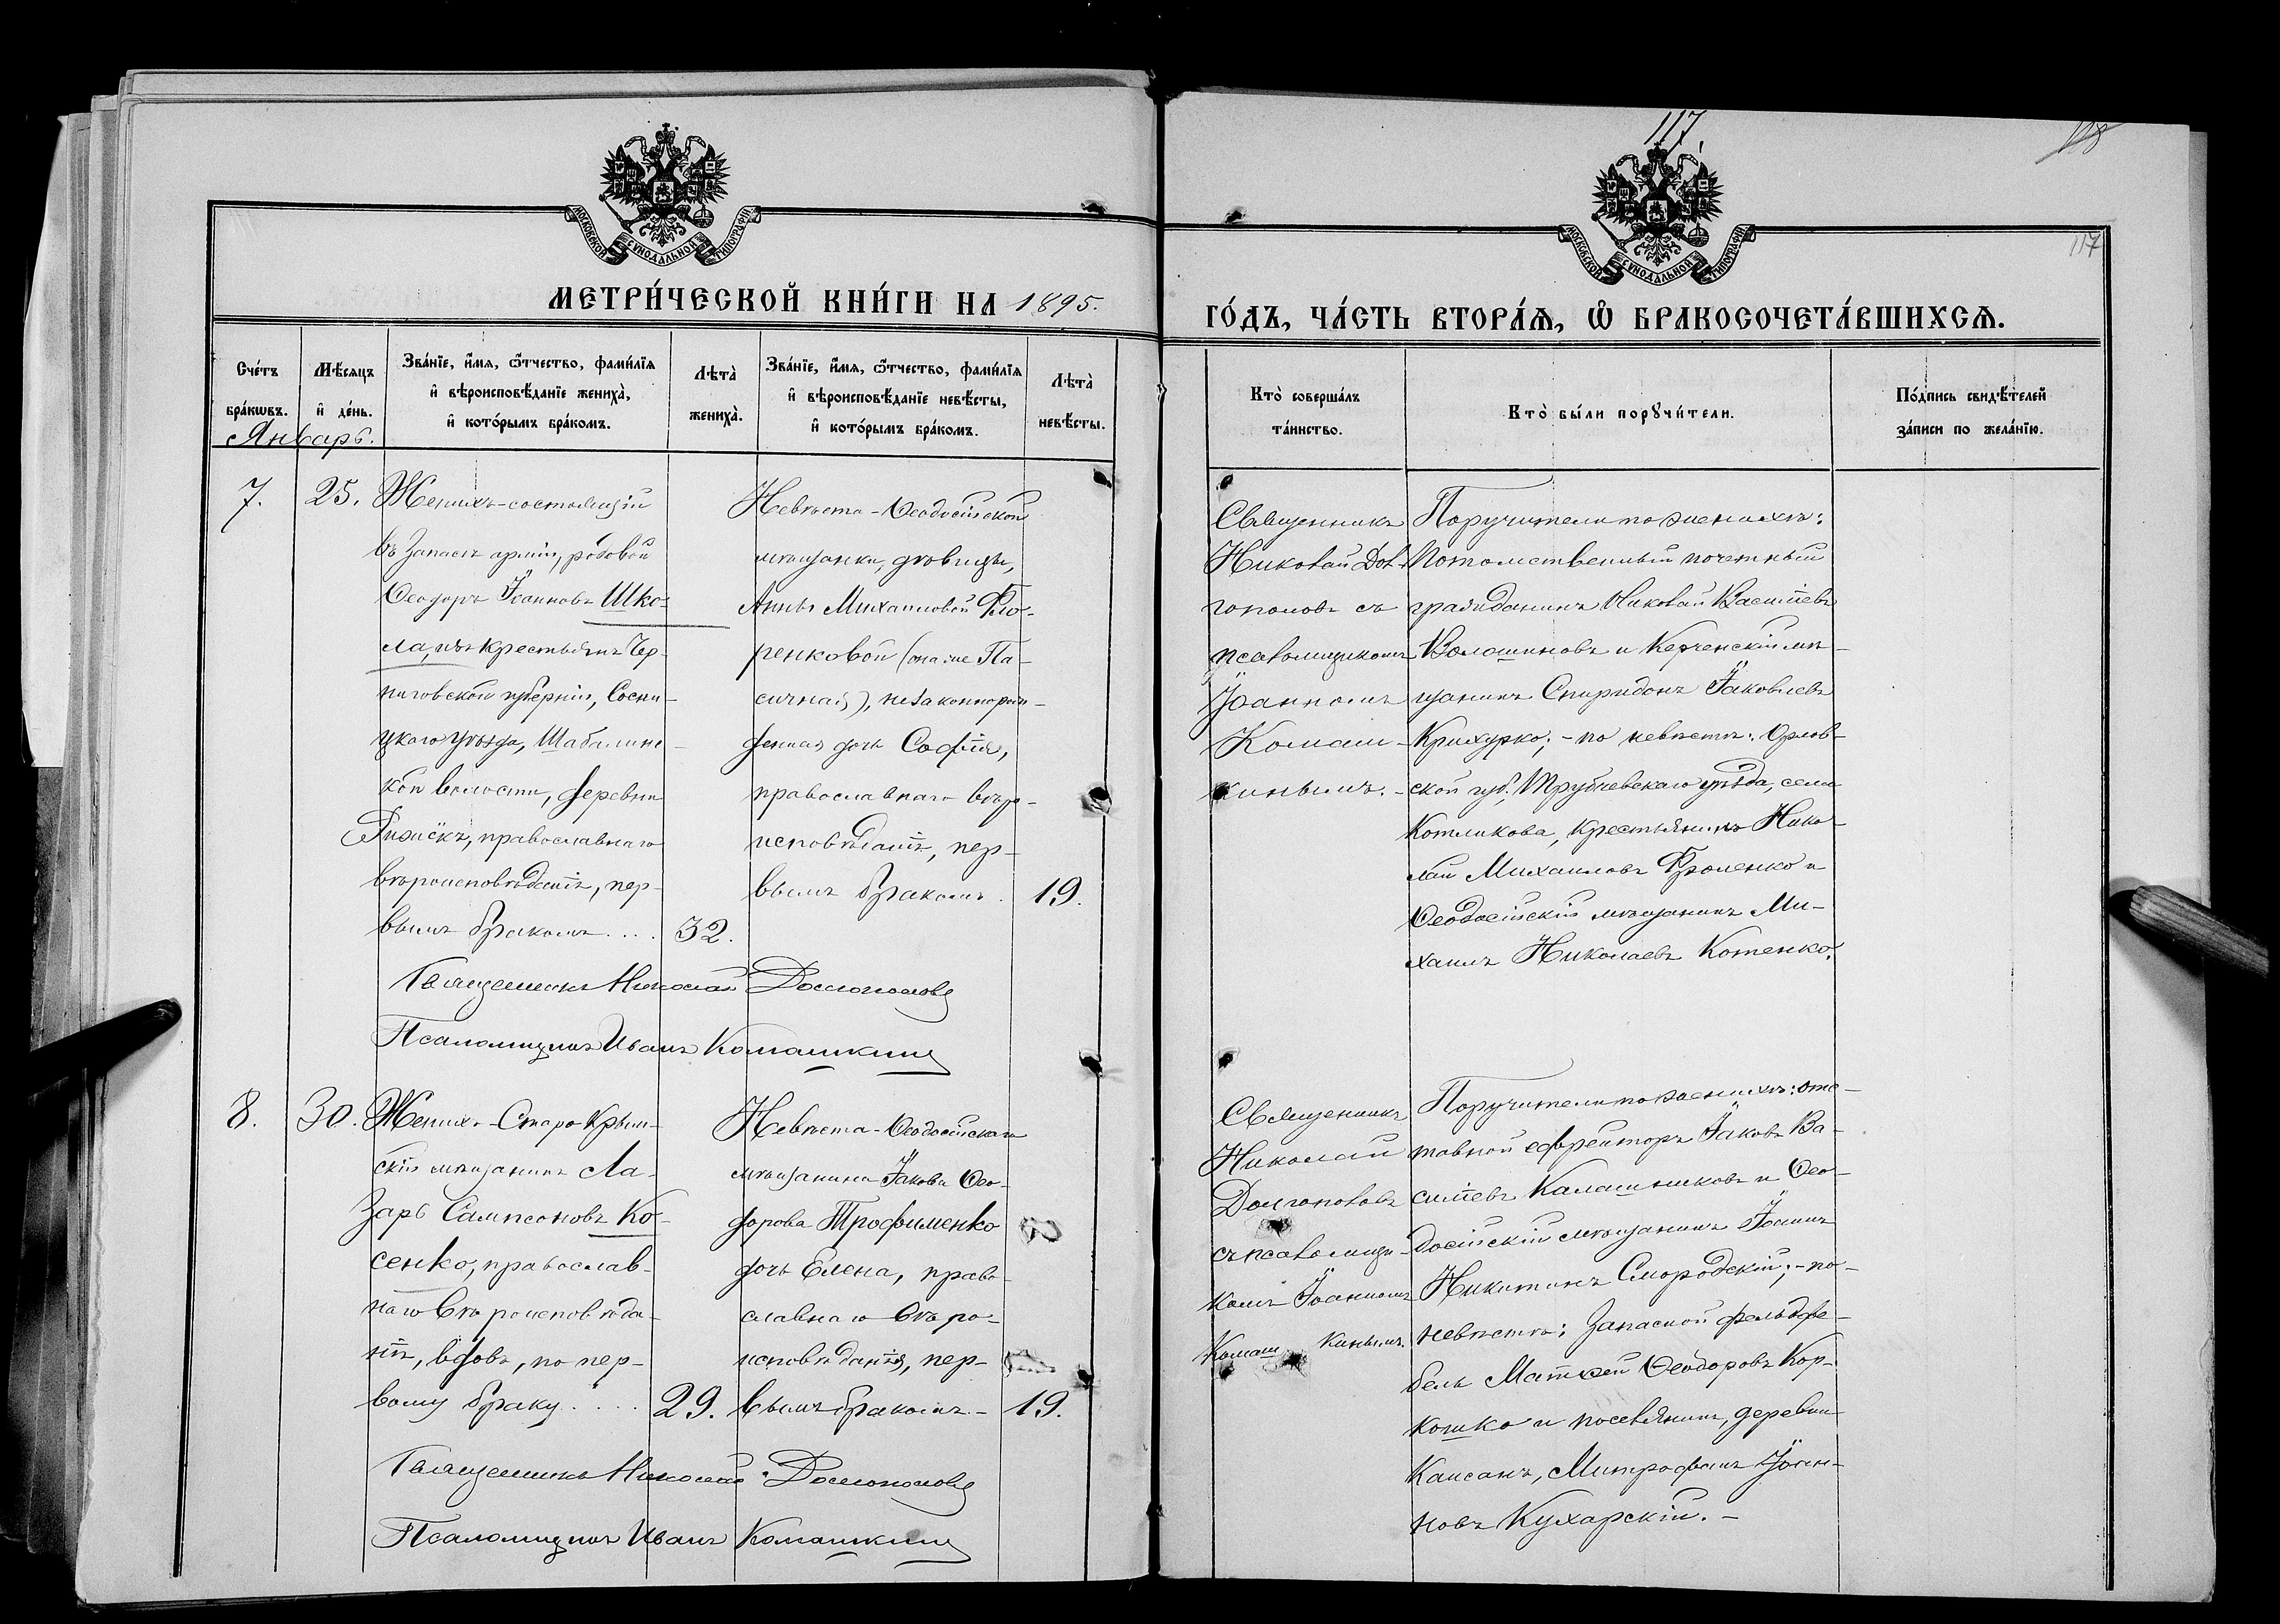 117.
118
117
МОСКОВСКОЙ СѴНОДАЛЬНОЙ ТИПОГРАФІИ
МОСКОВСКОЙ СѴНОДАЛЬНОЙ ТИПОГРАФІИ
МЕТРИ́ЧЕСКОЙ КНИ́ГИ НА 1895.
ГО́ДЪ, ЧА́СТЬ ВТОРА́Я, Ѡ҆ БРАКОСОЧЕТА́ВШИХСЯ.
Сче́тъ бра́кѡвъ.
Мѣ́сяцъ и҆ де́нь.
Зва́нїе, и҆́мя, ѻ҆́тчество, фами́лїя
и҆ вѣроисповѣ́данїе жениха̀,
и҆ кото́рымъ бра́комъ.
Лѣта̀ жениха̀.
Зва́нїе, и҆́мя, ѻ҆́тчество, фами́лїя
и҆ вѣроисповѣ́данїе невѣ́сты,
и҆ кото́рымъ бра́комъ.
Лѣта̀ невѣ́сты.
Кто̀ соверша́лъ
та́инство.
Кто̀ бы́ли порꙋчи́тели.
По́дпись свидѣ́телей
за́писи по жела́нїю.
Январь.
7.
25.
Женихъ-состоящій
въ запасѣ арміи, рядовой
Ѳеодоръ Іоанновъ Шко-
ла, изъ крестьянъ Чер-
ниговской губерніи, Сосни-
цкаго уѣзда, Шабалинс-
кой волости, деревни
православнаго
вѣроисповѣданія, пер-
вымъ бракомъ....
32.
Невѣста-Ѳеодосійской
мѣщанки, дѣвицы,
Анны Михаиловой Фло-
ренковой (она же Па-
сичная), незаконнорож-
денная дочь Софія,
православнаго вѣро-
исповѣданія, пер-
вымъ бракомъ.
19.
Священникъ
Николай Дол-
гополовъ съ
псаломщикомъ
Іоанномъ
Комаш-
кинымъ.-
Поручители по женихѣ:
Потомственный почетный
гражданинъ Николай Василіевъ
Волошиновъ и Керченскій мѣ-
щанинъ Спиридонъ Іаковлевъ
Крихурко;-по невѣстѣ: Орлов-
ской губ., Трубчевскаго уѣзда, села
Котликова, крестьянинъ Нико-
лай Михаиловъ Фроленко и
Ѳеодосійскій мѣщанинъ Ми-
хаилъ Николаевъ Котенко.
Священникъ Николай Долгополовъ
Псаломщикъ Иванъ Комашкинъ
8.
30.
Женихъ-Старо-Крым-
скій мѣщанинъ Ла-
зарь Сампсоновъ Ко-
сенко, православ-
наго вѣроисповѣда-
нія, вдовъ, по пер-
вому браку....
29.
Невѣста-Ѳеодосійскаго
мѣщанина Іакова Ѳео-
дорова Трофименко
дочь Елена, право-
славнаго вѣро-
исповѣданія, пер-
вымъ бракомъ.-
19.
Священникъ
Николай
Долгополовъ
съ псаломщи-
комъ Іоанномъ
Комашкинымъ.
Поручители по женихѣ: отс-
тавной ефрейторъ Іаковъ Ва-
силіевъ Калашниковъ и Ѳео-
досійскій мѣщанинъ Іоаннъ
Никитинъ Смородскій;-по-
невѣстѣ: Запасной фельдфе-
бель Матѳей Ѳеодоровъ Кор-
кошко и поселянинъ, деревни
Каисанъ, Митрофанъ Іоан-
новъ Кухарскій.-
Священникъ Николай Долгополовъ
Псаломщикъ Иванъ Комашкинъ